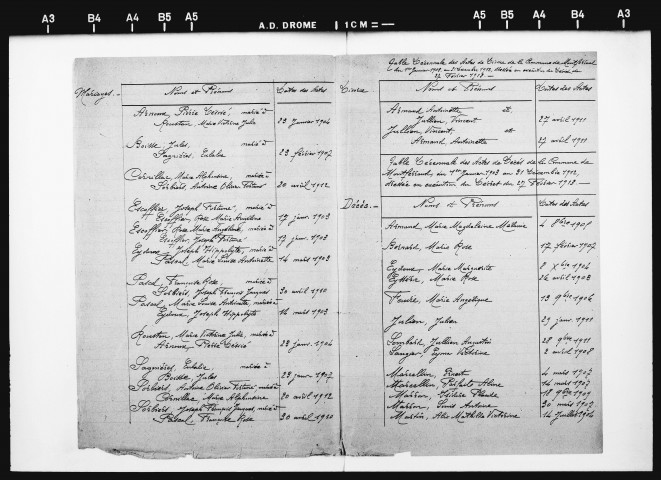 A3 B4 A4 B5 A5 A.D. DROME 1 CM A5 B5 A4 B4 A3
Mariages.-
Noms et Prénoms Dates des Actes
Arnoux, Pierre marié à
Rouston, Marie Victorine Julie 23 janvier 1904
Boisse, Jules, marié à
Sagnières, Eulalie 23 février 1907
Cornillac, Marie Alphonsine, mariée à
Sorbiers, Antoine Olivier 20 avril 1912
Escoffier, Joseph Fortuné, marié à
Escoffier, Rose Marie 17 janv. 1903
Escoffier, Rose Marie mariée à
Escoffier, Joseph Fortuné 17 janv. 1903
Eydoux, Joseph Hippolyte, marié à
Pascal, Marie Louise Antoinette 14 mars 1903
Pascal, Françoise Rose, mariée à
Sorbiers, Joseph François Jacques 30 avril 1910
Pascal, Marie Louise Antoinette, mariée à
Eydoux, Joseph Hippolyte 14 mars 1903
Rouston, Marie Victorine Julie, mariée à
Arnoux, Pierre 23 janv. 1904
Sagnières, Eulalie, mariée à
Boisse, Jules 23 1907
Sorbiers, Antoine Olivier marié à
Cornillac, Marie Alphonsine 20 avril 1912
Sorbiers, Joseph François Jacques, marié à
Pascal, Françoise Rose 30 avril 1910
Table Décennale des Actes de Divorce de la Commune de Montferrand
du 1er janvier 1903 au 31 Décembre 1912, dressée en exécution du Décret du
27 Février 1913.-
Divorces
Noms et Prénoms Dates des Actes
Armand, Antoinette et
Jullien, Vincent 27 avril 1911
Jullien, Vincent, et
Armand, Antoinette 27 avril 1911
Table Décennale des Actes de Décès de la Commune de
Montferrand, du 1er janvier 1903 au 31 Décembre 1912,
dressée en exécution du Décret du 27 Février 1913.-
Décès.-
Noms et Prénoms Dates des Actes
Armand, Marie Magdeleine 4 8bre 1908
Bernard, Marie Rose 12 février 1907
Eydoux, Marie Marguerite 8 Xbre 1904
Marie Rose 26 avril 1903
Marie Angélique 13 9bre 1906
Julien, Julien 29 janv. 1911
Lombard, Jullien Augustin 28 9bre 1911
Victorine 2 avril 1908
Marcellin, 4 mars 1907
Marcellin, 14 mars 1907
18 9bre 1909
Louis Antoine 30 mars 1907
Martin, Mathilde Victorine 14 Juillet 1906